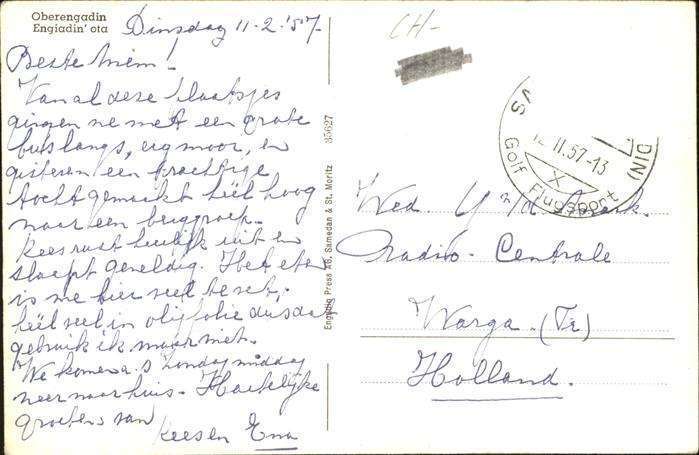 Oberengadin
Engiadin' ota
Dinsdag 11-2-'57.
Beste Miem!
Van al deze plaatsjes
gingen we met een grote
bus langs, erg mooi, en
gisteren een prachtige
tocht gemaakt héél hoog
naar een berggroep.
Kees rust heerlijk uit en
slaapt geweldig. Het eten
is me hier veel te vet,
héél veel in olijfolie dus dat
gebruik ik maar niet.
We komen a.s Zondag middag
weer naar huis. Hartelijke
groeten van
Kees en Ena
Engadin Press AG, Samedan & St. Moritz 35627
CH-
VS DIN)
12.II.57-13
X
Golf Flugsport
Wed. Y v/d
Radio-Centrale
Warga. (Fr)
Holland.